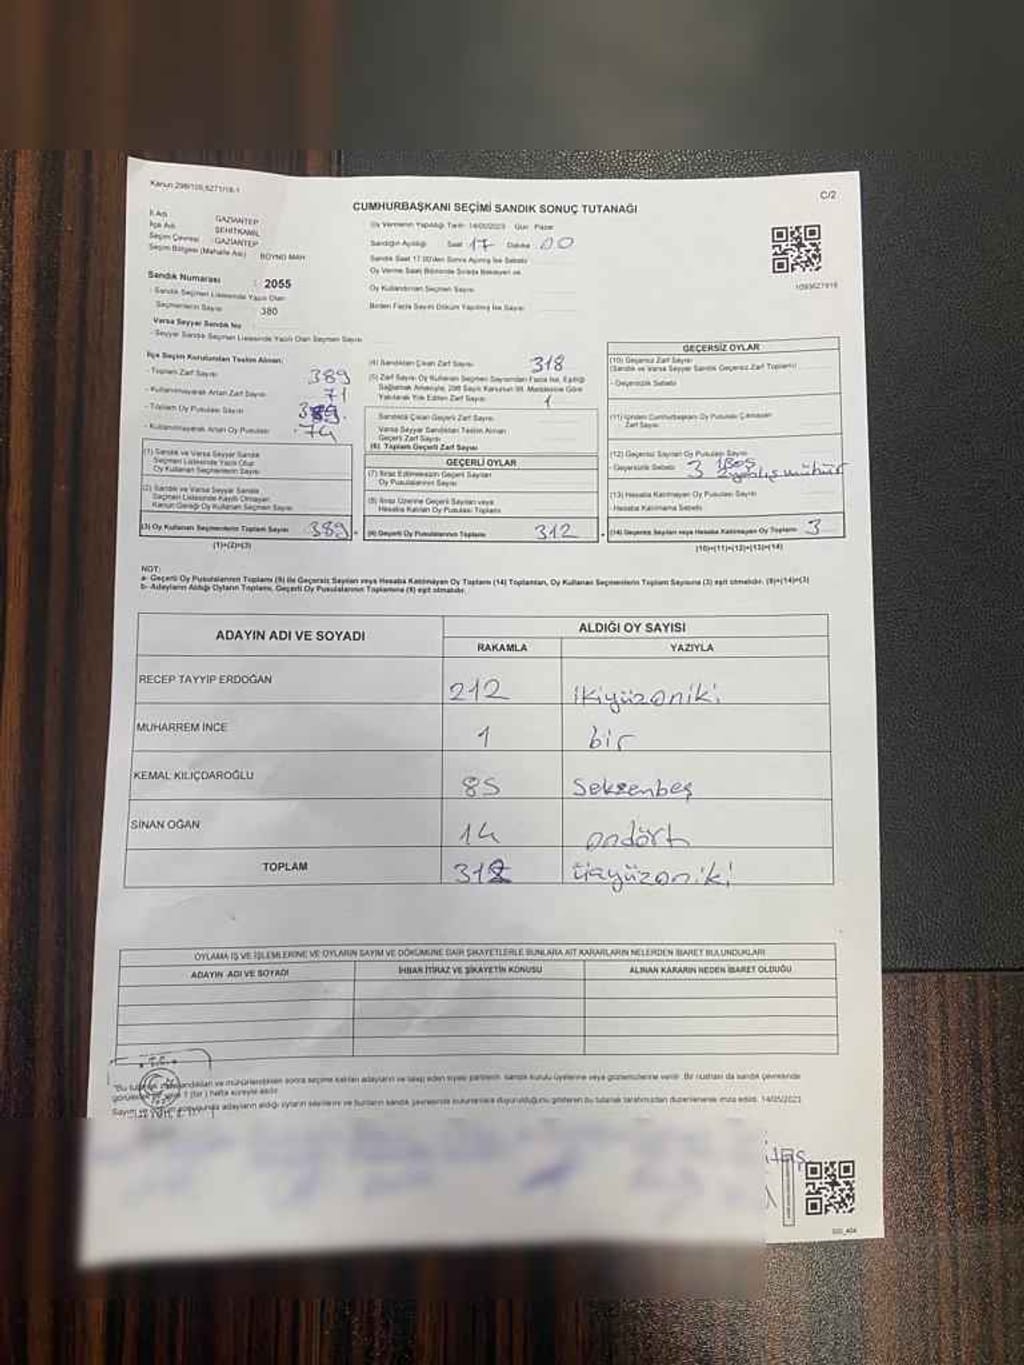 Kanun 298/105,6271/18-1
C/2
CUMHURBAŞKANI SEÇİMİ SANDIK SONUÇ TUTANAĞI
İl Adı GAZİANTEP
İlçe Adı ŞEHİTKAMİL
Seçim Çevresi GAZİANTEP
Seçim Bölgesi (Mahalle Adı) BOYNO MAH
Sandık Numarası : 2055
- Sandık Seçmen Listesinde Yazılı Olan
Seçmenlerin Sayısı 380
Varsa Seyyar Sandık No
- Seyyar Sandık Seçmen Listesinde Yazılı Olan Seçmen Sayısı
Oy Vermenin Yapıldığı Tarih: 14/05/2023 Gün: Pazar
Sandığın Açıldığı Saat 17 Dakika 00
Sandık Saat 17.00'den Sonra Açılmış İse Sebebi
Oy Verme Saati Bitiminde Sırada Bekleyen ve
Oy Kullandırılan Seçmen Sayısı
Birden Fazla Sayım Döküm Yapılmış İse Sayısı
1093627918
İlçe Seçim Kurulundan Teslim Alınan:
- Toplam Zarf Sayısı 389
- Kullanılmayarak Artan Zarf Sayısı 71
- Toplam Oy Pusulası Sayısı 389
- Kullanılmayarak Artan Oy Pusulası 74
(1) Sandık ve Varsa Seyyar Sandık
Seçmen Listesinde Yazılı Olup
Oy Kullanan Seçmenlerin Sayısı
(2) Sandık ve Varsa Seyyar Sandık
Seçmen Listesinde Kayıtlı Olmayan
Kanun Gereği Oy Kullanan Seçmen Sayısı
(3) Oy Kullanan Seçmenlerin Toplam Sayısı 389
(1)+(2)=(3)
(4) Sandıktan Çıkan Zarf Sayısı 318
(5) Zarf Sayısı Oy Kullanan Seçmen Sayısından Fazla İse, Eşitliği
Sağlamak Amacıyla, 298 Sayılı Kanunun 98. Maddesine Göre
Yakılarak Yok Edilen Zarf Sayısı 1
Sandıkta Çıkan Geçerli Zarf Sayısı
Varsa Seyyar Sandıktan Teslim Alınan
Geçerli Zarf Sayısı
(6) Toplam Geçerli Zarf Sayısı
GEÇERLİ OYLAR
(7) İtiraz Edilmeksizin Geçerli Sayılan
Oy Pusulalarının Sayısı
(8) İtiraz Üzerine Geçerli Sayılan veya
Hesaba Katılan Oy Pusulası Toplamı
(9) Geçerli Oy Pusulalarının Toplamı 312
GEÇERSİZ OYLAR
(10) Geçersiz Zarf Sayısı
(Sandık ve Varsa Seyyar Sandık Geçersiz Zarf Toplamı)
- Geçersizlik Sebebi
(11) İçinden Cumhurbaşkanı Oy Pusulası Çıkmayan
Zarf Sayısı
(12) Geçersiz Sayılan Oy Pusulası Sayısı
- Geçersizlik Sebebi 3 1 Boş
2 yanlış mühür
(13) Hesaba Katılmayan Oy Pusulası Sayısı
- Hesaba Katılmama Sebebi
(14) Geçersiz Sayılan veya Hesaba Katılmayan Oy Toplamı 3
(10)+(11)+(12)+(13)=(14)
NOT:
a- Geçerli Oy Pusulalarının Toplamı (9) ile Geçersiz Sayılan veya Hesaba Katılmayan Oy Toplamı (14) Toplamları, Oy Kullanan Seçmenlerin Toplam Sayısına (3) eşit olmalıdır. (9)+(14)=(3)
b- Adayların Aldığı Oyların Toplamı, Geçerli Oy Pusulalarının Toplamına (9) eşit olmalıdır.
ADAYIN ADI VE SOYADI
ALDIĞI OY SAYISI
RAKAMLA YAZIYLA
RECEP TAYYİP ERDOĞAN 212 ikiyüzoniki
MUHARREM İNCE 1 bir
KEMAL KILIÇDAROĞLU 85 Seksenbeş
SİNAN OĞAN 14 ondört
TOPLAM 312 üçyüzoniki
OYLAMA İŞ VE İŞLEMLERİNE VE OYLARIN SAYIM VE DÖKÜMÜNE DAİR ŞİKAYETLERLE BUNLARA AİT KARARLARIN NELERDEN İBARET BULUNDUKLARI
ADAYIN ADI VE SOYADI İHBAR İTİRAZ VE ŞİKAYETİN KONUSU ALINAN KARARIN NEDEN İBARET OLDUĞU
T.C.
sonra seçime katılan adayların ve talep eden siyasi partilerin sandık kurulu üyelerine veya gözlemcilerine verilir. Bir nüshası da sandık çevresinde
1 (bir) hafta süreyle asılır.
Sayım ve adayların aldığı oyların sayılarını ve bunların sandık çevresinde bulunanlara duyurulduğunu gösteren bu tutanak tarafımızdan düzenlenerek imza edildi. 14/05/2023